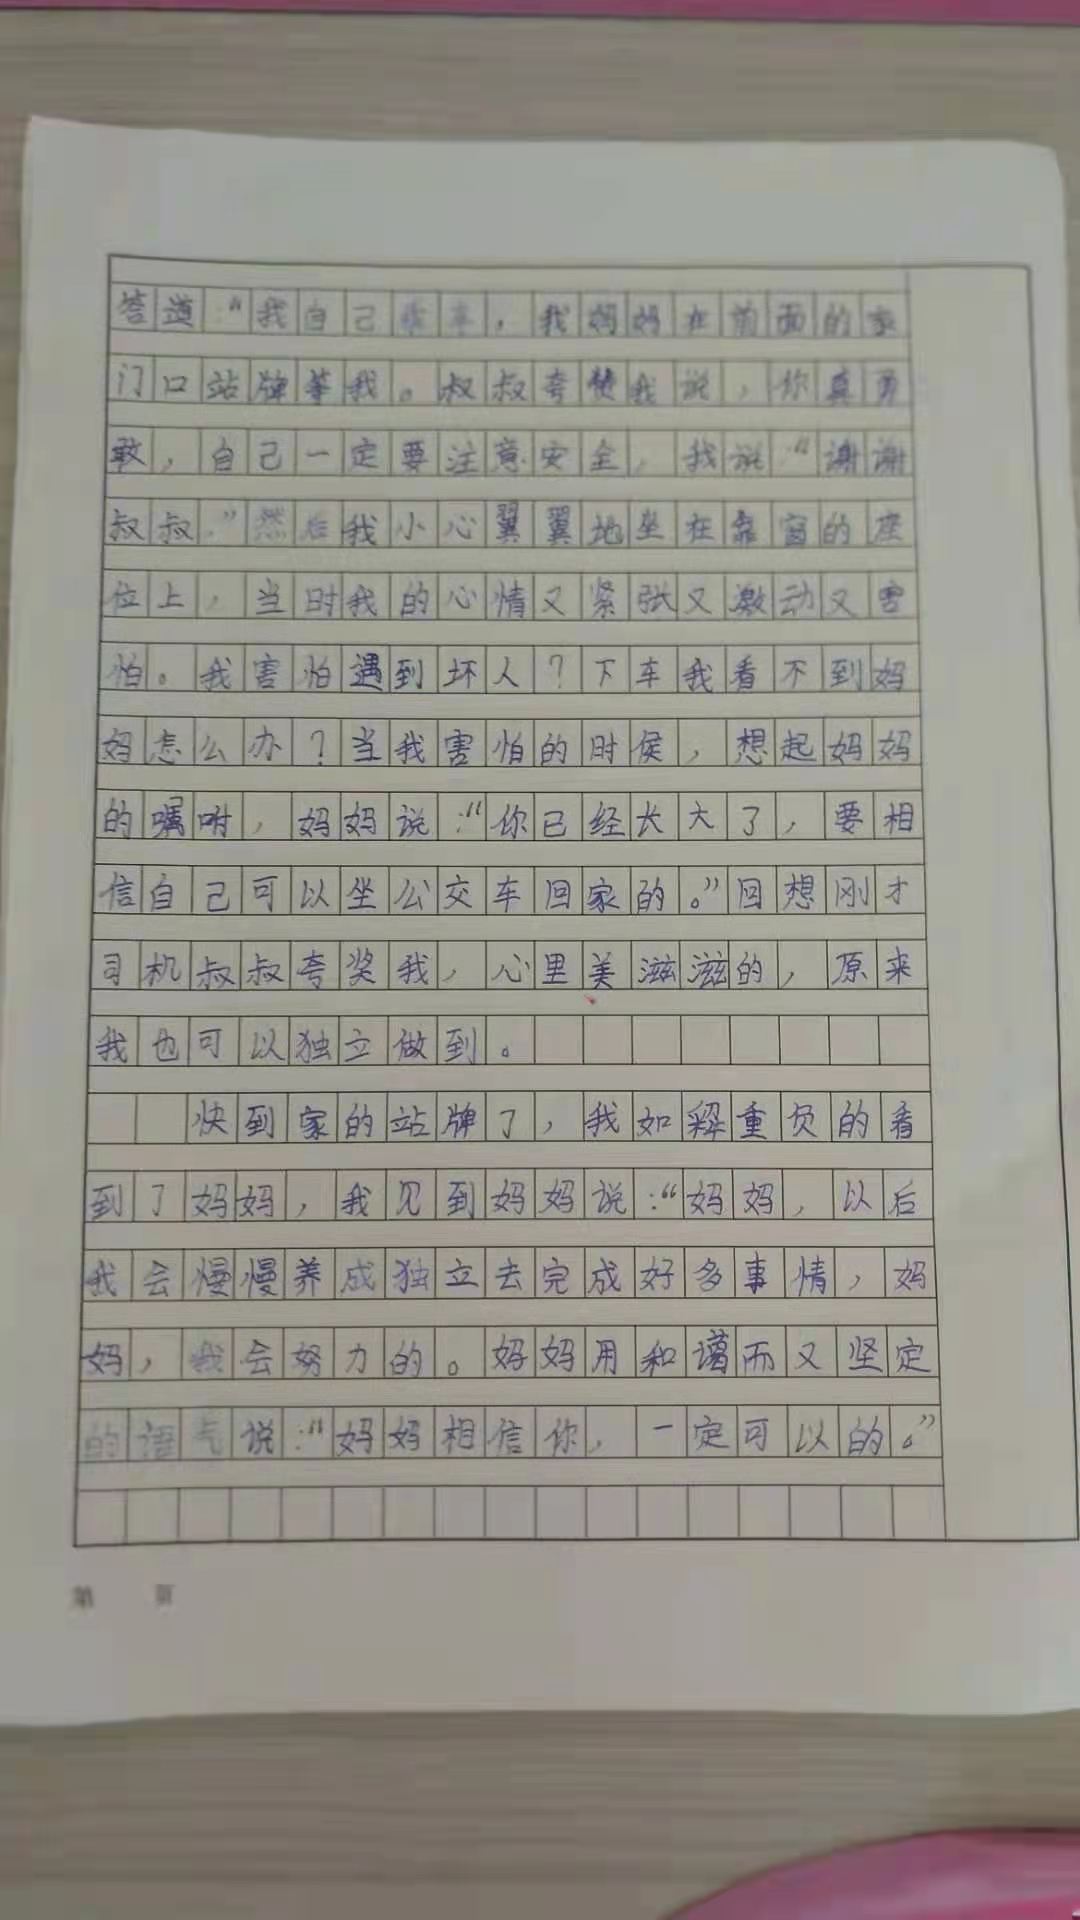 答道:“我自己乘车，我妈妈在前面的家
门口站牌等我。叔叔夸赞我说，你真勇
敢，自己一定要注意安全，我说:“谢谢
叔叔。”然后我小心翼翼地坐在靠窗的座
位上，当时我的心情又紧张又激动又害
怕。我害怕遇到坏人？下车我看不到妈
妈怎么办？当我害怕的时侯，想起妈妈
的嘱咐，妈妈说:“你已经长大了，要相
信自己可以坐公交车回家的。”回想刚才
司机叔叔夸奖我，心里美滋滋的，原来
我也可以独立做到。
快到家的站牌了，我如释重负的看
到了妈妈，我见到妈妈说:“妈妈，以后
我会慢慢养成独立去完成好多事情，妈
妈，我会努力的。妈妈用和蔼而又坚定
的语气说:“妈妈相信你，一定可以的。”
第 页